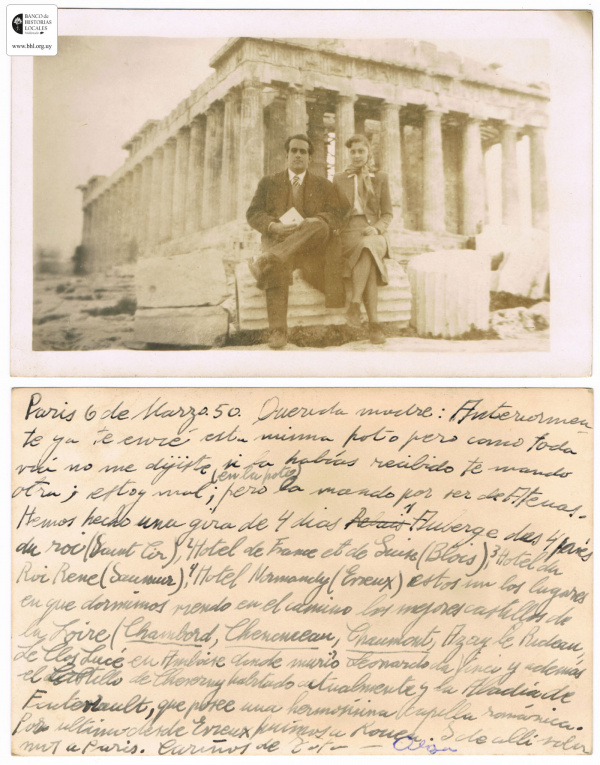 BANCO de
HISTORIAS
LOCALES
www.bhl.org.uy
Paris 6 de Marzo. 50. Querida madre: Anteriormen
te ya te envié esta misma foto pero como toda
vía no me dijiste si la habías recibido te mando
otra; estoy mal; (en la foto) pero la mando por ser de Atenas.-
Hemos hecho una gira de 4 días 1 Auberge des 4 pavés
du roi (Saint Cir), 2 Hotel de France et de (Blois), 3 Hotel du
Roi René (Saumur), 4 Hotel Normandy (Evreux) estos son los lugares
en que dormimos viendo en el camino los mejores castillos de
la Loire (Chambord, Chenonceau, Chaumont, Azay le Rideau,
Le Clos Lucé en Amboise donde murió Leonardo da Vinci y además
el Castillo de Cheverny habitado actualmente y la Abadía de
que posee una hermosísima capilla románica.
Por ultimo desde Evreux fuimos a Rouen. De alli volvi
mos a Paris. Cariños de Toto —